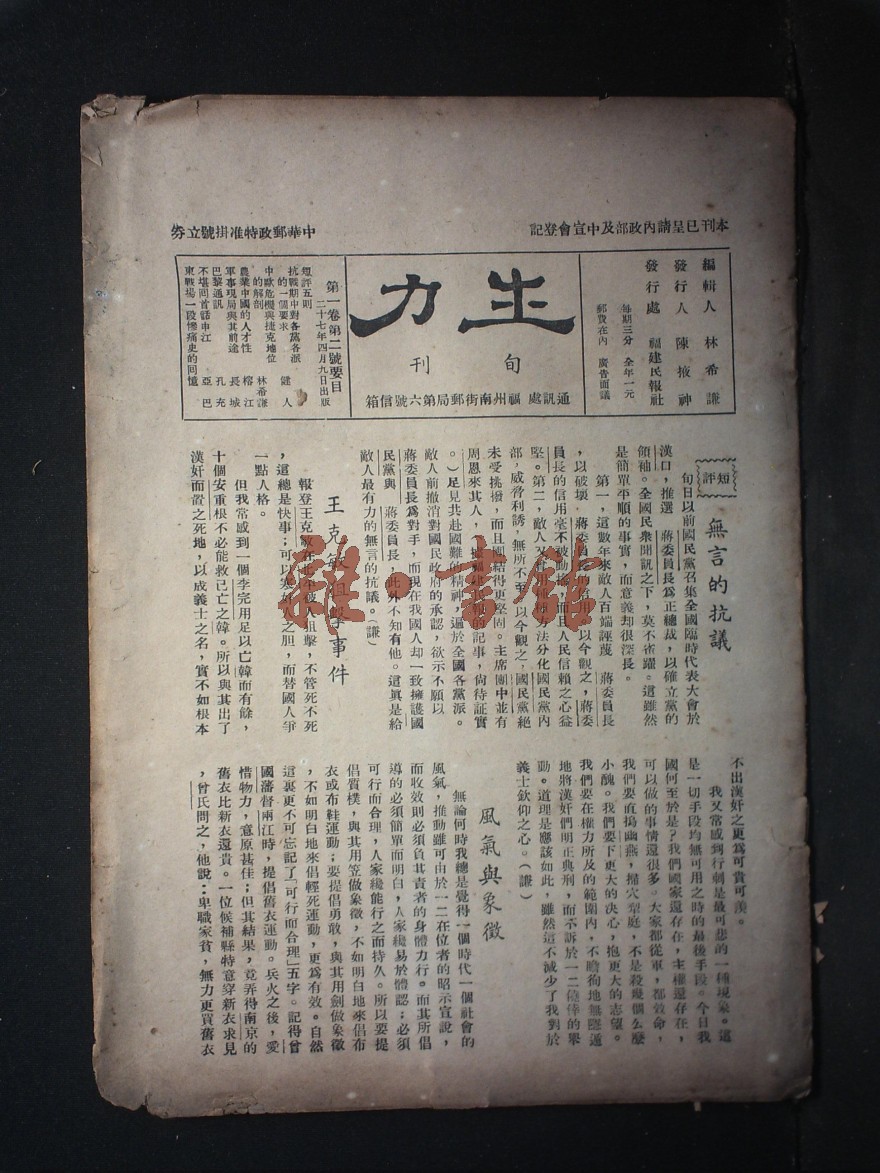 本刊已呈請內政部及中宣會登記
中華郵政特准掛號立券
編輯人 林希謙
發行人 陳掖神
發行處 福建民報社
每期三分 全年一元
郵費在內 廣告面議
生力
旬刊
通訊處 福州南街郵局第六號信箱
第一卷第二號要目
二十七年四月九日出版
短評五則
抗戰期中對各黨各派
的一個要求 健人
中歐危機與捷克地位
的解剖 林希謙
農業中國的人才性 榕江
軍事現局與其前途 長城
巴黎通訊 孔充
不堪回首話申江 亞巴
東戰場一段慘痛史的回憶
短評
無言的抗議
旬日以前國民黨召集全國臨時代表大會於
漢口,推選 蔣委員長爲正總裁,以確立黨的
領袖。全國民衆聞訊之下,莫不雀躍。這雖然
是簡單平順的事實,而意義却很深長。
第一,這數年來敵人百端誣蔑 蔣委員長
,以破壞 蔣委員長的信用,以今觀之,蔣委
員長的信用毫不被動搖,而且人民信賴之心益
堅。第二,敵人又會用種種方法分化國民黨內
部,威脅利誘,無所不至,以今觀之,國民黨絕
未受挑撥,而且團結得更堅固。主席團中並有
周恩來其人,(據福建民報的記事,尙待証實
。)足見共赴國難的精神,遍於全國各黨派。
敵人前撤消對國民政府的承認,欲示不願以
蔣委員長爲對手,而現在我國人却一致擁護國
民黨與 蔣委員長,此外不知有他。這眞是給
敵人最有力的無言的抗議。(謙)
王克敏狙擊事件
報登王克敏在北平被人狙擊,不管死不死
,這總是快事;可以寒奸人之胆,而替國人爭
一點人格。
但我常感到一個李完用足以亡韓而有餘,
十個安重根不必能救已亡之韓。所以與其出了
漢奸而置之死地,以成義士之名,實不如根本
不出漢奸之更爲可貴可羡。
我又常感到行刺是最可悲的一種現象。這
是一切手段均無可用之時的最後手段。今日我
國何至於是?我們國家還存在,主權還存在,
可以做的事情還很多。大家都從軍,都效命,
我們要直搗幽燕,掃穴犂庭,不是殺幾個么麼
小醜。我們要下更大的决心,抱更大的志望。
我們要在權力所及的範圍內,不瞻徇地無墜通
地將漢奸們明正典刑,而不訴於一二僥倖的舉
動。道理是應該如此,雖然這不減少了我對於
義士欽仰之心。(謙)
風氣與象徵
無論何時我總是覺得一個時代一個社會的
風氣,推動雖可由於一二在位者的昭示宣說,
而收效則必須負其責者的身體力行。而其所倡
導的必須簡單而明白,人家纔易於體認;必須
可行而合理,人家纔能行之而持久。所以要提
倡質樸,與其用笠做象徵,不如明白地來倡布
衣或布鞋運動;要提倡勇敢,與其用劍做象徵
,不如明白地來倡輕死運動,更爲有效。自然
這裏更不可忘記了「可行而合理」五字。記得曾
國藩督兩江時,提倡舊衣運動。兵火之後,愛
惜物力,意原甚佳;但其結果,竟弄得南京的
舊衣比新衣還貴。一位候補縣特意穿新衣求見
,曾氏問之,他說:卑職家貧,無力更買舊衣
雜·書館